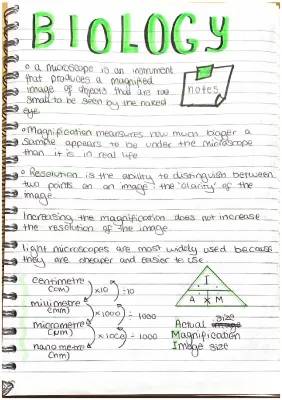 BIOLOGY
a microscope is an instrument
that produces a magnified
image of objects that are too
small to be seen by the naked
eye
notes
Magnification measures how much bigger a
sample appears to be under the microscope
than it is in real life
Resolution is the ability to distinguish between
two points on an image - the 'clarity' of the
image
Increasing the magnification does not increase
the resolution of the image.
Light microscopes are most widely used because
they are cheaper and easier to use.
centimetre
(cm)
×10 ÷10
millimetre
(mm)
×1000 ÷ 1000
micrometre
(μm)
×1000 ÷ 1000
nanometre
(nm)
I
A × M
Actual size
Magnification
Image size